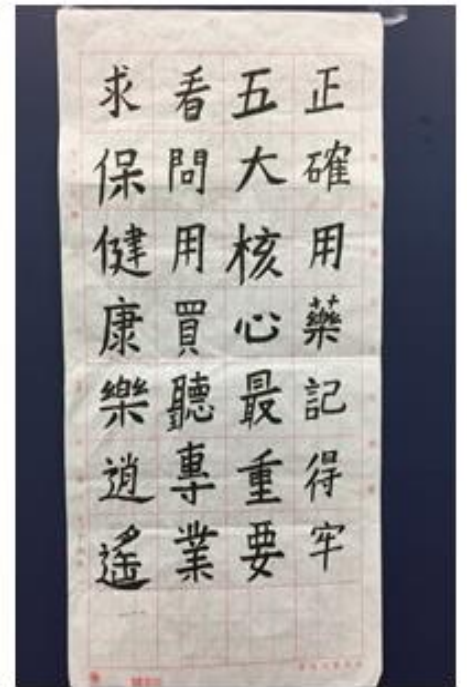 正確用藥記得牢
五大核心最重要
看問用買聽專業
求保健康樂逍遙